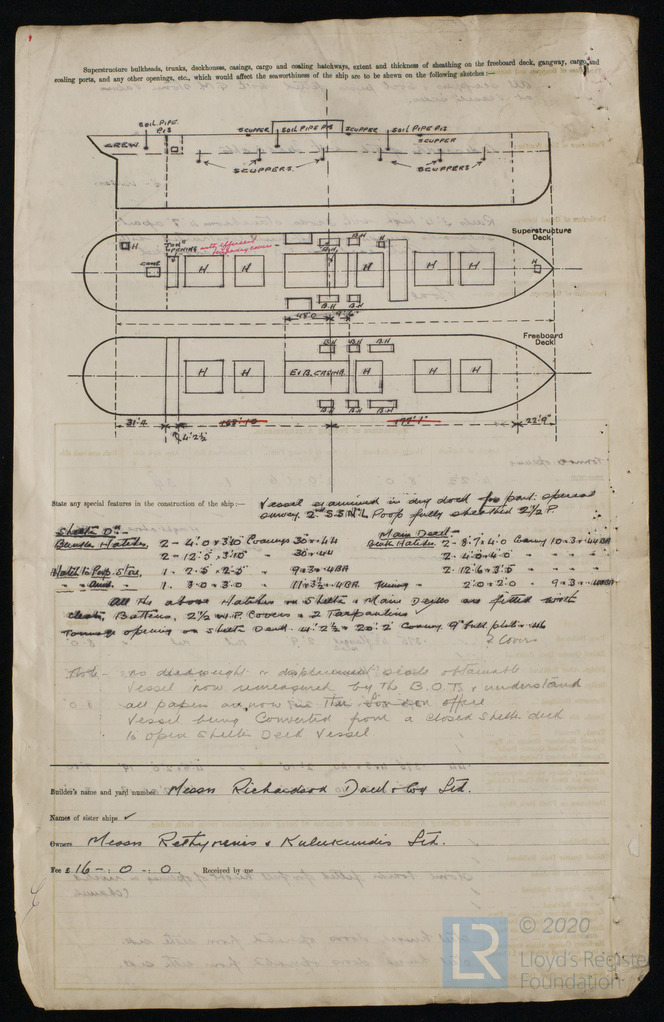 Superstructure bulkheads, trunks, deckhouses, casings, cargo and coaling hatchways, extent and thickness of sheathing on the freeboard deck, gangway, cargo and
coaling ports, and any other openings, etc., which would affect the seaworthiness of the ship are to be shewn on the following sketches:—
SOIL PIPE
P&S
SCUPPER
SOIL PIPE P&S
SCUPPER
SOIL PIPE P&S
CREW
SCUPPERS
SCUPPERS
Superstructure
Deck
H
TON:
OPENING with efficient temporary covers
B.H
B.H
H
H
H
H
H
H
H
B.H
B.H
48'0
9'6"
Freeboard
Deck
B.H
B.H
B.H
H
H
E&B. CASING
H
H
H
B.H
B.H
B.H
31'4
4'2½
22'9"
State any special features in the construction of the ship:—
Vessel examined in dry dock for part special
survey 2nd S.S. No 1. Poop fully sheathed 2½ P.
Shelter Dk
Main Deck
Bunker Hatches 2 - 4.0 x 3.0 Coamings 30 x .44
Bunk Hatches 2 - 8.7 x 4.0 Coaming 10 x 3 x .44 BA
2 - 12.5 x 3.10 " 30 x .44
2. 4.0 x 4.0 " "
Hatch to Poop Store 1. 2.5 x 2.5 " 9 x 3 x .4 BA
2. 12.6 x 3.5 " "
1. 3.0 x 3.0 " 11 x 3½ x .4 BA
2.0 x 2.0 "
All the above Hatches on Shelter & Main Decks are fitted with
cleats, Battens, 2½ W.P. Covers & 2 Tarpaulins
Tonnage opening on Shelter Deck 4'.2½ x 20'.2" Coaming 9"
2 Covers
Note - no deadweight or displacement scale obtainable
Vessel now remeasured by the B.O.T. & understand
all papers are now in the London office
Vessel being Converted from a closed Shelter deck
to open Shelter Deck Vessel
Builder's name and yard number Messrs Richardson Duck & Coy Ltd.
Names of sister ships ✓
Owners Messrs Rethymnis & Kulukundis Ltd.
Fee £ 16 -: 0 -: 0. Received by me
LR
© 2020
Lloyd's Register
Foundation